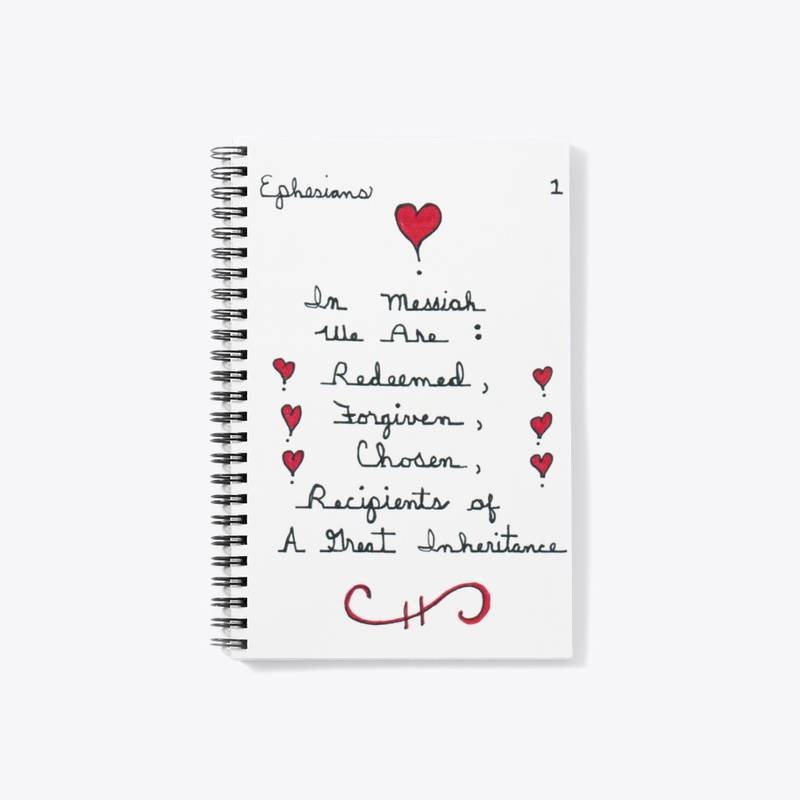 Ephesians 1
In Messiah
We Are :
Redeemed,
Forgiven,
Chosen,
Recipients of
A Great Inheritance